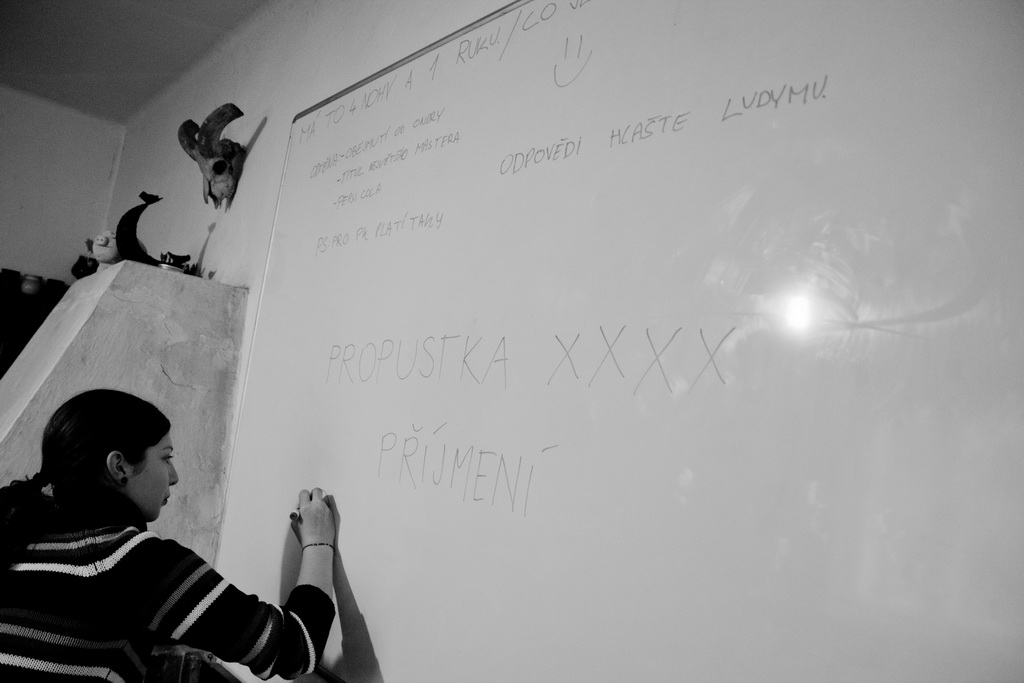 MÁ TO 4 NOHY A 1 RUKU. / CO JE
ODMĚNA: - OBEJMUTÍ OD ONDRY
- TITUL NEJVĚTŠÍHO MASTERA
- PEPSI COLA
PS: PRO PK PLATÍ TAKY
ODPOVĚDI HLAŠTE LUDYMU.
PROPUSTKA XXXX
PŘÍJMENÍ